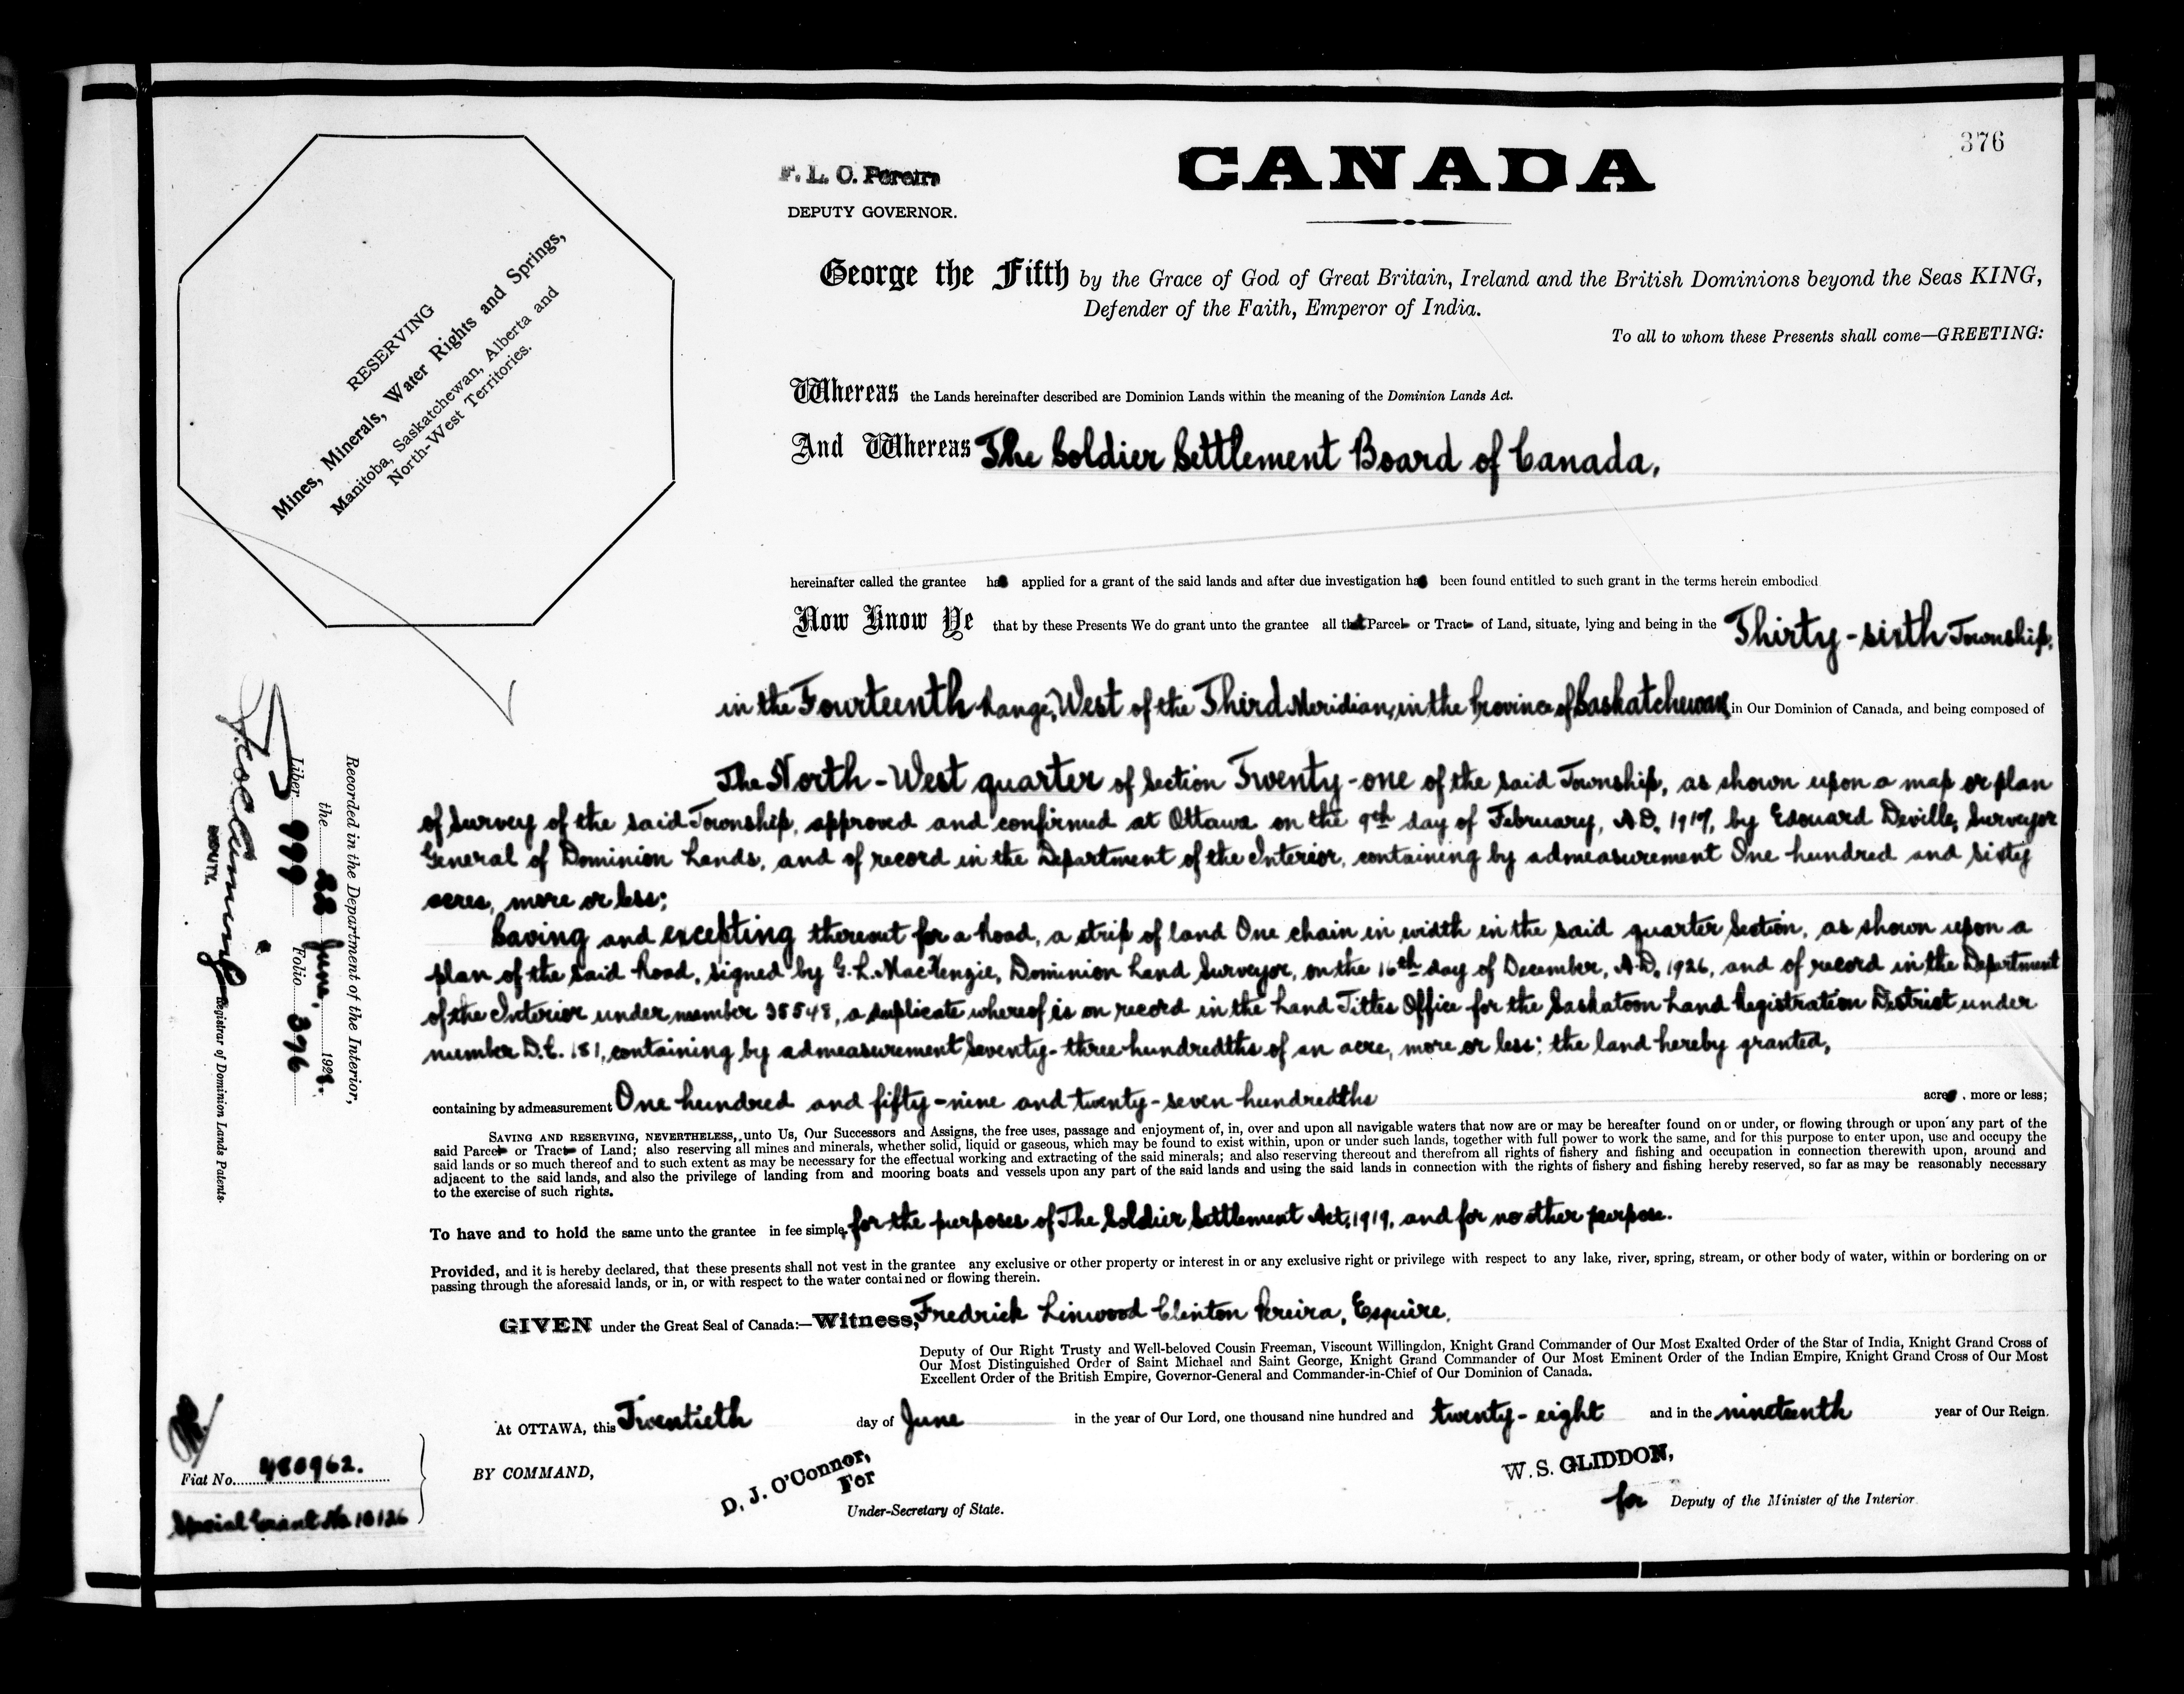 376
CANADA
F. L. C. Pereira
DEPUTY GOVERNOR.
RESERVING
Mines, Minerals, Water Rights and Springs,
Manitoba, Saskatchewan, Alberta and
North-West Territories.
George the Fifth by the Grace of God of Great Britain, Ireland and the British Dominions beyond the Seas KING,
Defender of the Faith, Emperor of India.
To all to whom these Presents shall come—GREETING:
Whereas the Lands hereinafter described are Dominion Lands within the meaning of the Dominion Lands Act.
And Whereas The Soldier Settlement Board of Canada,
hereinafter called the grantee has applied for a grant of the said lands and after due investigation has been found entitled to such grant in the terms herein embodied
Now Know Ye that by these Presents We do grant unto the grantee all that Parcel or Tract of Land, situate, lying and being in the Thirty-sixth Township,
in the Fourteenth Range, West of the Third Meridian, in the Province of Saskatchewan in Our Dominion of Canada, and being composed of
The North-West quarter of Section Twenty-one of the said Township, as shown upon a map or plan
of Survey of the said Township, approved and confirmed at Ottawa on the 9th day of February, A.D. 1917, by Edouard Deville, Surveyor
General of Dominion Lands, and of record in the Department of the Interior, containing by admeasurement One hundred and sixty
acres, more or less;
Saving and excepting thereout for a Road, a strip of land One chain in width in the said quarter Section, as shown upon a
plan of the said Road, signed by G. L. MacKenzie, Dominion Land Surveyor, on the 16th day of December, A.D. 1926, and of record in the Department
of the Interior under number 35548, a duplicate whereof is on record in the Land Titles Office for the Saskatoon Land Registration District under
number D.E. 181, containing by admeasurement Seventy-three hundredths of an acre, more or less; the land hereby granted,
containing by admeasurement One hundred and fifty-nine and twenty-seven hundredths acres, more or less;
SAVING AND RESERVING, NEVERTHELESS, unto Us, Our Successors and Assigns, the free uses, passage and enjoyment of, in, over and upon all navigable waters that now are or may be hereafter found on or under, or flowing through or upon any part of the
said Parcel or Tract of Land; also reserving all mines and minerals, whether solid, liquid or gaseous, which may be found to exist within, upon or under such lands, together with full power to work the same, and for this purpose to enter upon, use and occupy the
said lands or so much thereof and to such extent as may be necessary for the effectual working and extracting of the said minerals; and also reserving thereout and therefrom all rights of fishery and fishing and occupation in connection therewith upon, around and
adjacent to the said lands, and also the privilege of landing from and mooring boats and vessels upon any part of the said lands and using the said lands in connection with the rights of fishery and fishing hereby reserved, so far as may be reasonably necessary
to the exercise of such rights.
To have and to hold the same unto the grantee in fee simple, for the purposes of The Soldier Settlement Act, 1919, and for no other purpose.
Provided, and it is hereby declared, that these presents shall not vest in the grantee any exclusive or other property or interest in or any exclusive right or privilege with respect to any lake, river, spring, stream, or other body of water, within or bordering on or
passing through the aforesaid lands, or in, or with respect to the water contained or flowing therein.
GIVEN under the Great Seal of Canada:—Witness, Fredrick Linwood Clinton Pereira, Esquire,
Deputy of Our Right Trusty and Well-beloved Cousin Freeman, Viscount Willingdon, Knight Grand Commander of Our Most Exalted Order of the Star of India, Knight Grand Cross of
Our Most Distinguished Order of Saint Michael and Saint George, Knight Grand Commander of Our Most Eminent Order of the Indian Empire, Knight Grand Cross of Our Most
Excellent Order of the British Empire, Governor-General and Commander-in-Chief of Our Dominion of Canada.
At OTTAWA, this Twentieth day of June in the year of Our Lord, one thousand nine hundred and twenty-eight and in the nineteenth year of Our Reign.
BY COMMAND,
D. J. O'Connor,
For
Under-Secretary of State.
W. S. GLIDDON,
for Deputy of the Minister of the Interior
Recorded in the Department of the Interior,
the 22 June, 1928.
Liber 999 Folio 376
DEPUTY. Registrar of Dominion Lands Patents.
Fiat No. 480962.
Special Grant No. 10126